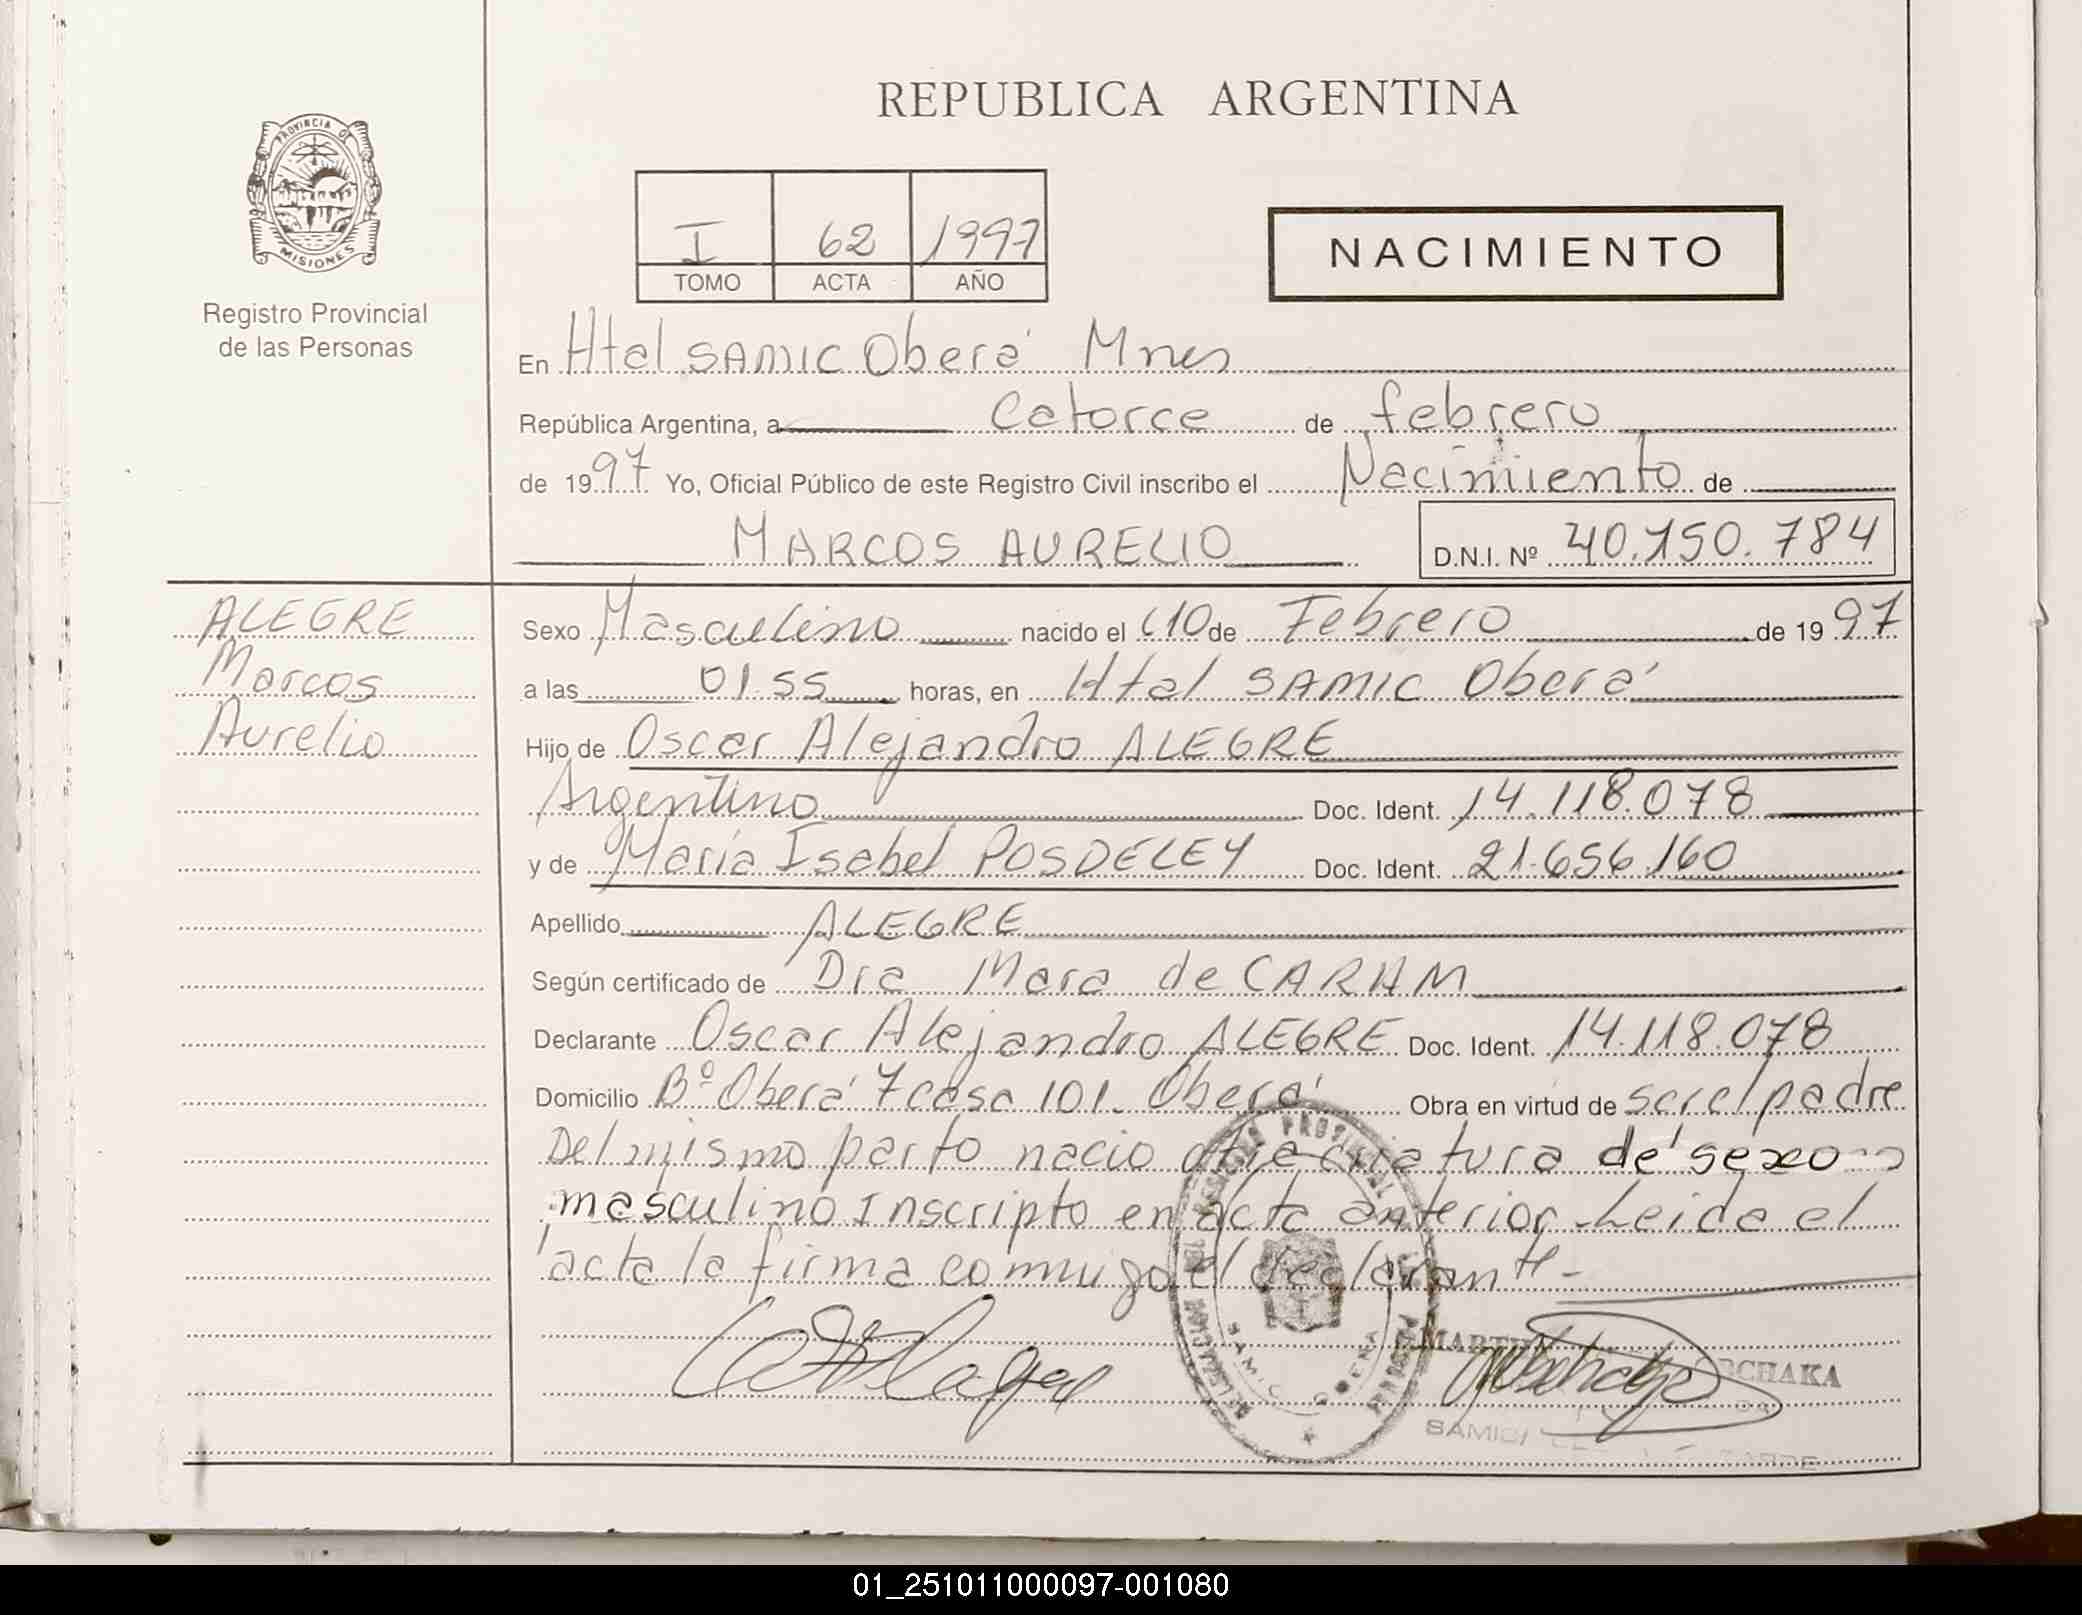 REPUBLICA ARGENTINA
PROVINCIA DE
MISIONES
Registro Provincial
de las Personas
I 62 1997
TOMO ACTA AÑO
NACIMIENTO
En Htal SAMIC Oberá Mnes
República Argentina, a catorce de febrero
de 1997 Yo, Oficial Público de este Registro Civil inscribo el Nacimiento de
MARCOS AURELIO D.N.I. Nº 40.150.784
ALEGRE
Marcos
Aurelio
Sexo Masculino nacido el 10 de Febrero de 1997
a las 01.55 horas, en Htal SAMIC Oberá
Hijo de Oscar Alejandro ALEGRE
Argentino Doc. Ident. 14.118.078
y de María Isabel POSDELEY Doc. Ident. 21.656.160
Apellido ALEGRE
Según certificado de Dra Mara de CARAM
Declarante Oscar Alejandro ALEGRE Doc. Ident. 14.118.078
Domicilio Bº Oberá 7 casa 101. Oberá Obra en virtud de ser el padre
Del mismo parto nacio otra criatura de sexo
masculino Inscripto en acta anterior. Leida el
acta la firma conmigo el declarante-
01_251011000097-001080